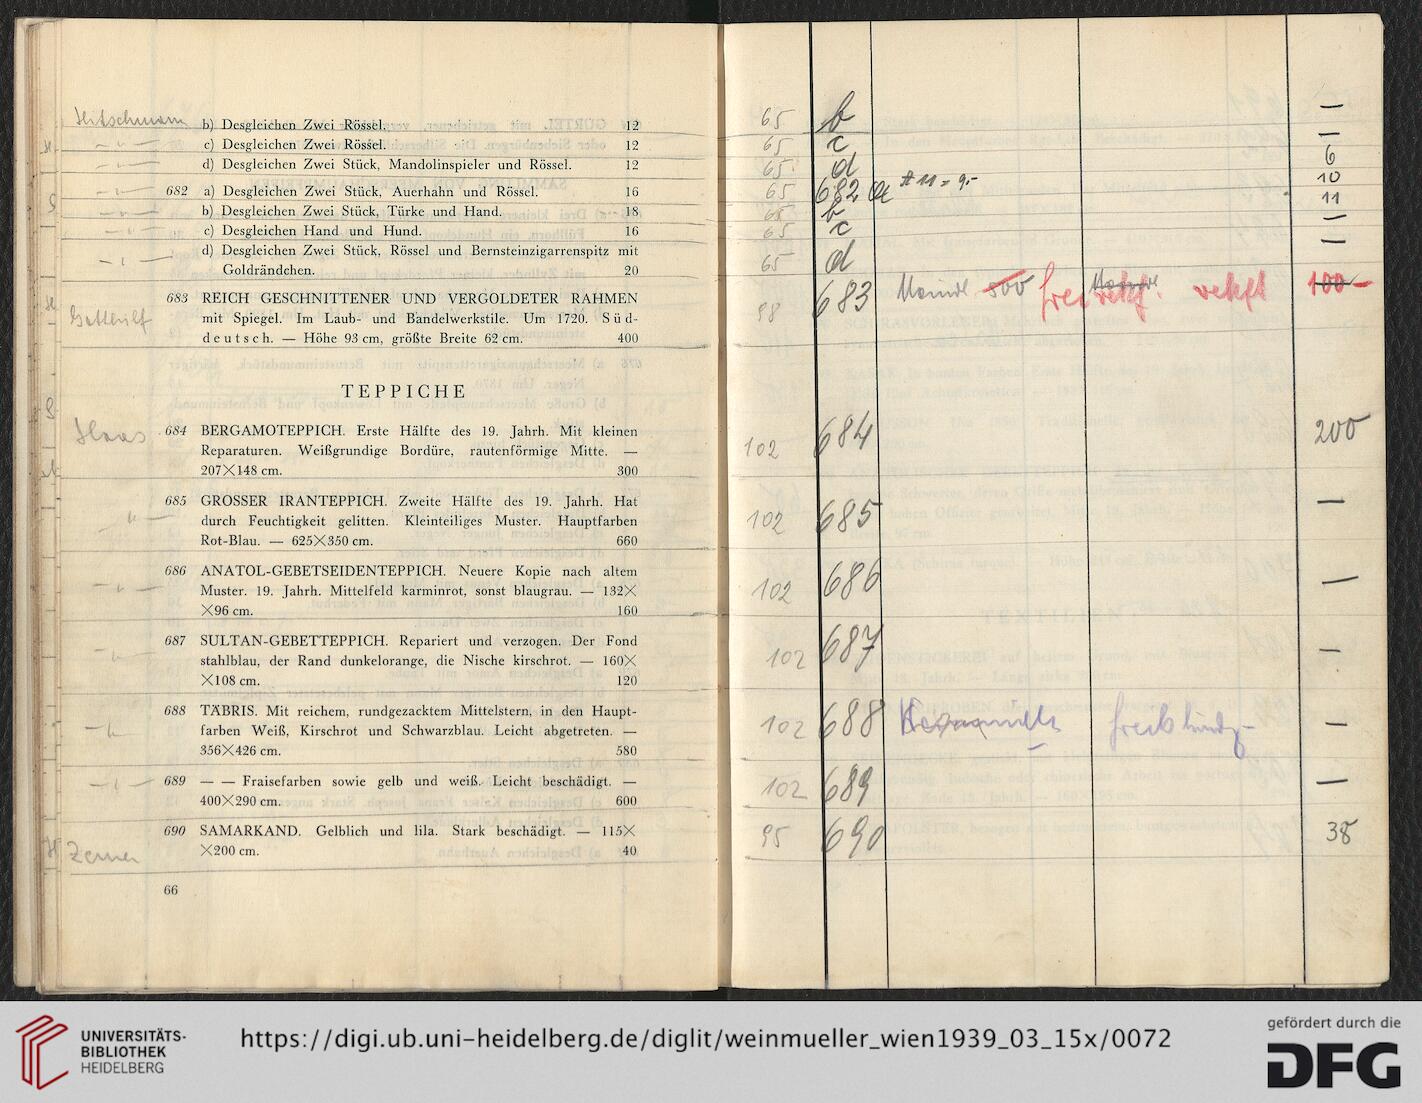 Hitschmann
b) Desgleichen Zwei Rössel. 12
c) Desgleichen Zwei Rössel. 12
d) Desgleichen Zwei Stück, Mandolinspieler und Rössel. 12
682 a) Desgleichen Zwei Stück, Auerhahn und Rössel. 16
b) Desgleichen Zwei Stück, Türke und Hand. 18
c) Desgleichen Hand und Hund. 16
d) Desgleichen Zwei Stück, Rössel und Bernsteinzigarrenspitz mit
Goldrändchen. 20
683 REICH GESCHNITTENER UND VERGOLDETER RAHMEN
mit Spiegel. Im Laub- und Bandelwerkstile. Um 1720. Süd-
deutsch. — Höhe 93 cm, größte Breite 62 cm. 400
TEPPICHE
Haas
684 BERGAMOTEPPICH. Erste Hälfte des 19. Jahrh. Mit kleinen
Reparaturen. Weißgrundige Bordüre, rautenförmige Mitte. —
207×148 cm. 300
685 GROSSER IRANTEPPICH. Zweite Hälfte des 19. Jahrh. Hat
durch Feuchtigkeit gelitten. Kleinteiliges Muster. Hauptfarben
Rot-Blau. — 625×350 cm. 660
686 ANATOL-GEBETSEIDENTEPPICH. Neuere Kopie nach altem
Muster. 19. Jahrh. Mittelfeld karminrot, sonst blaugrau. — 132×
×96 cm. 160
687 SULTAN-GEBETTEPPICH. Repariert und verzogen. Der Fond
stahlblau, der Rand dunkelorange, die Nische kirschrot. — 160×
×108 cm. 120
688 TÄBRIS. Mit reichem, rundgezacktem Mittelstern, in den Haupt-
farben Weiß, Kirschrot und Schwarzblau. Leicht abgetreten. —
356×426 cm. 580
689 — — Fraisefarben sowie gelb und weiß. Leicht beschädigt. —
400×290 cm. 600
690 SAMARKAND. Gelblich und lila. Stark beschädigt. — 115×
×200 cm. 40
Zerner
66
65 b —
65 c —
65 d 6
65 682 a 10
65 b 11
65 c —
65 d —
98 683 500 100 —
102 684 200
102 685 —
102 686 —
102 687 —
102 688 —
102 689 —
95 690 38
UNIVERSITÄTS-
BIBLIOTHEK
HEIDELBERG
https://digi.ub.uni-heidelberg.de/diglit/weinmueller_wien1939_03_15x/0072
gefördert durch die
DFG